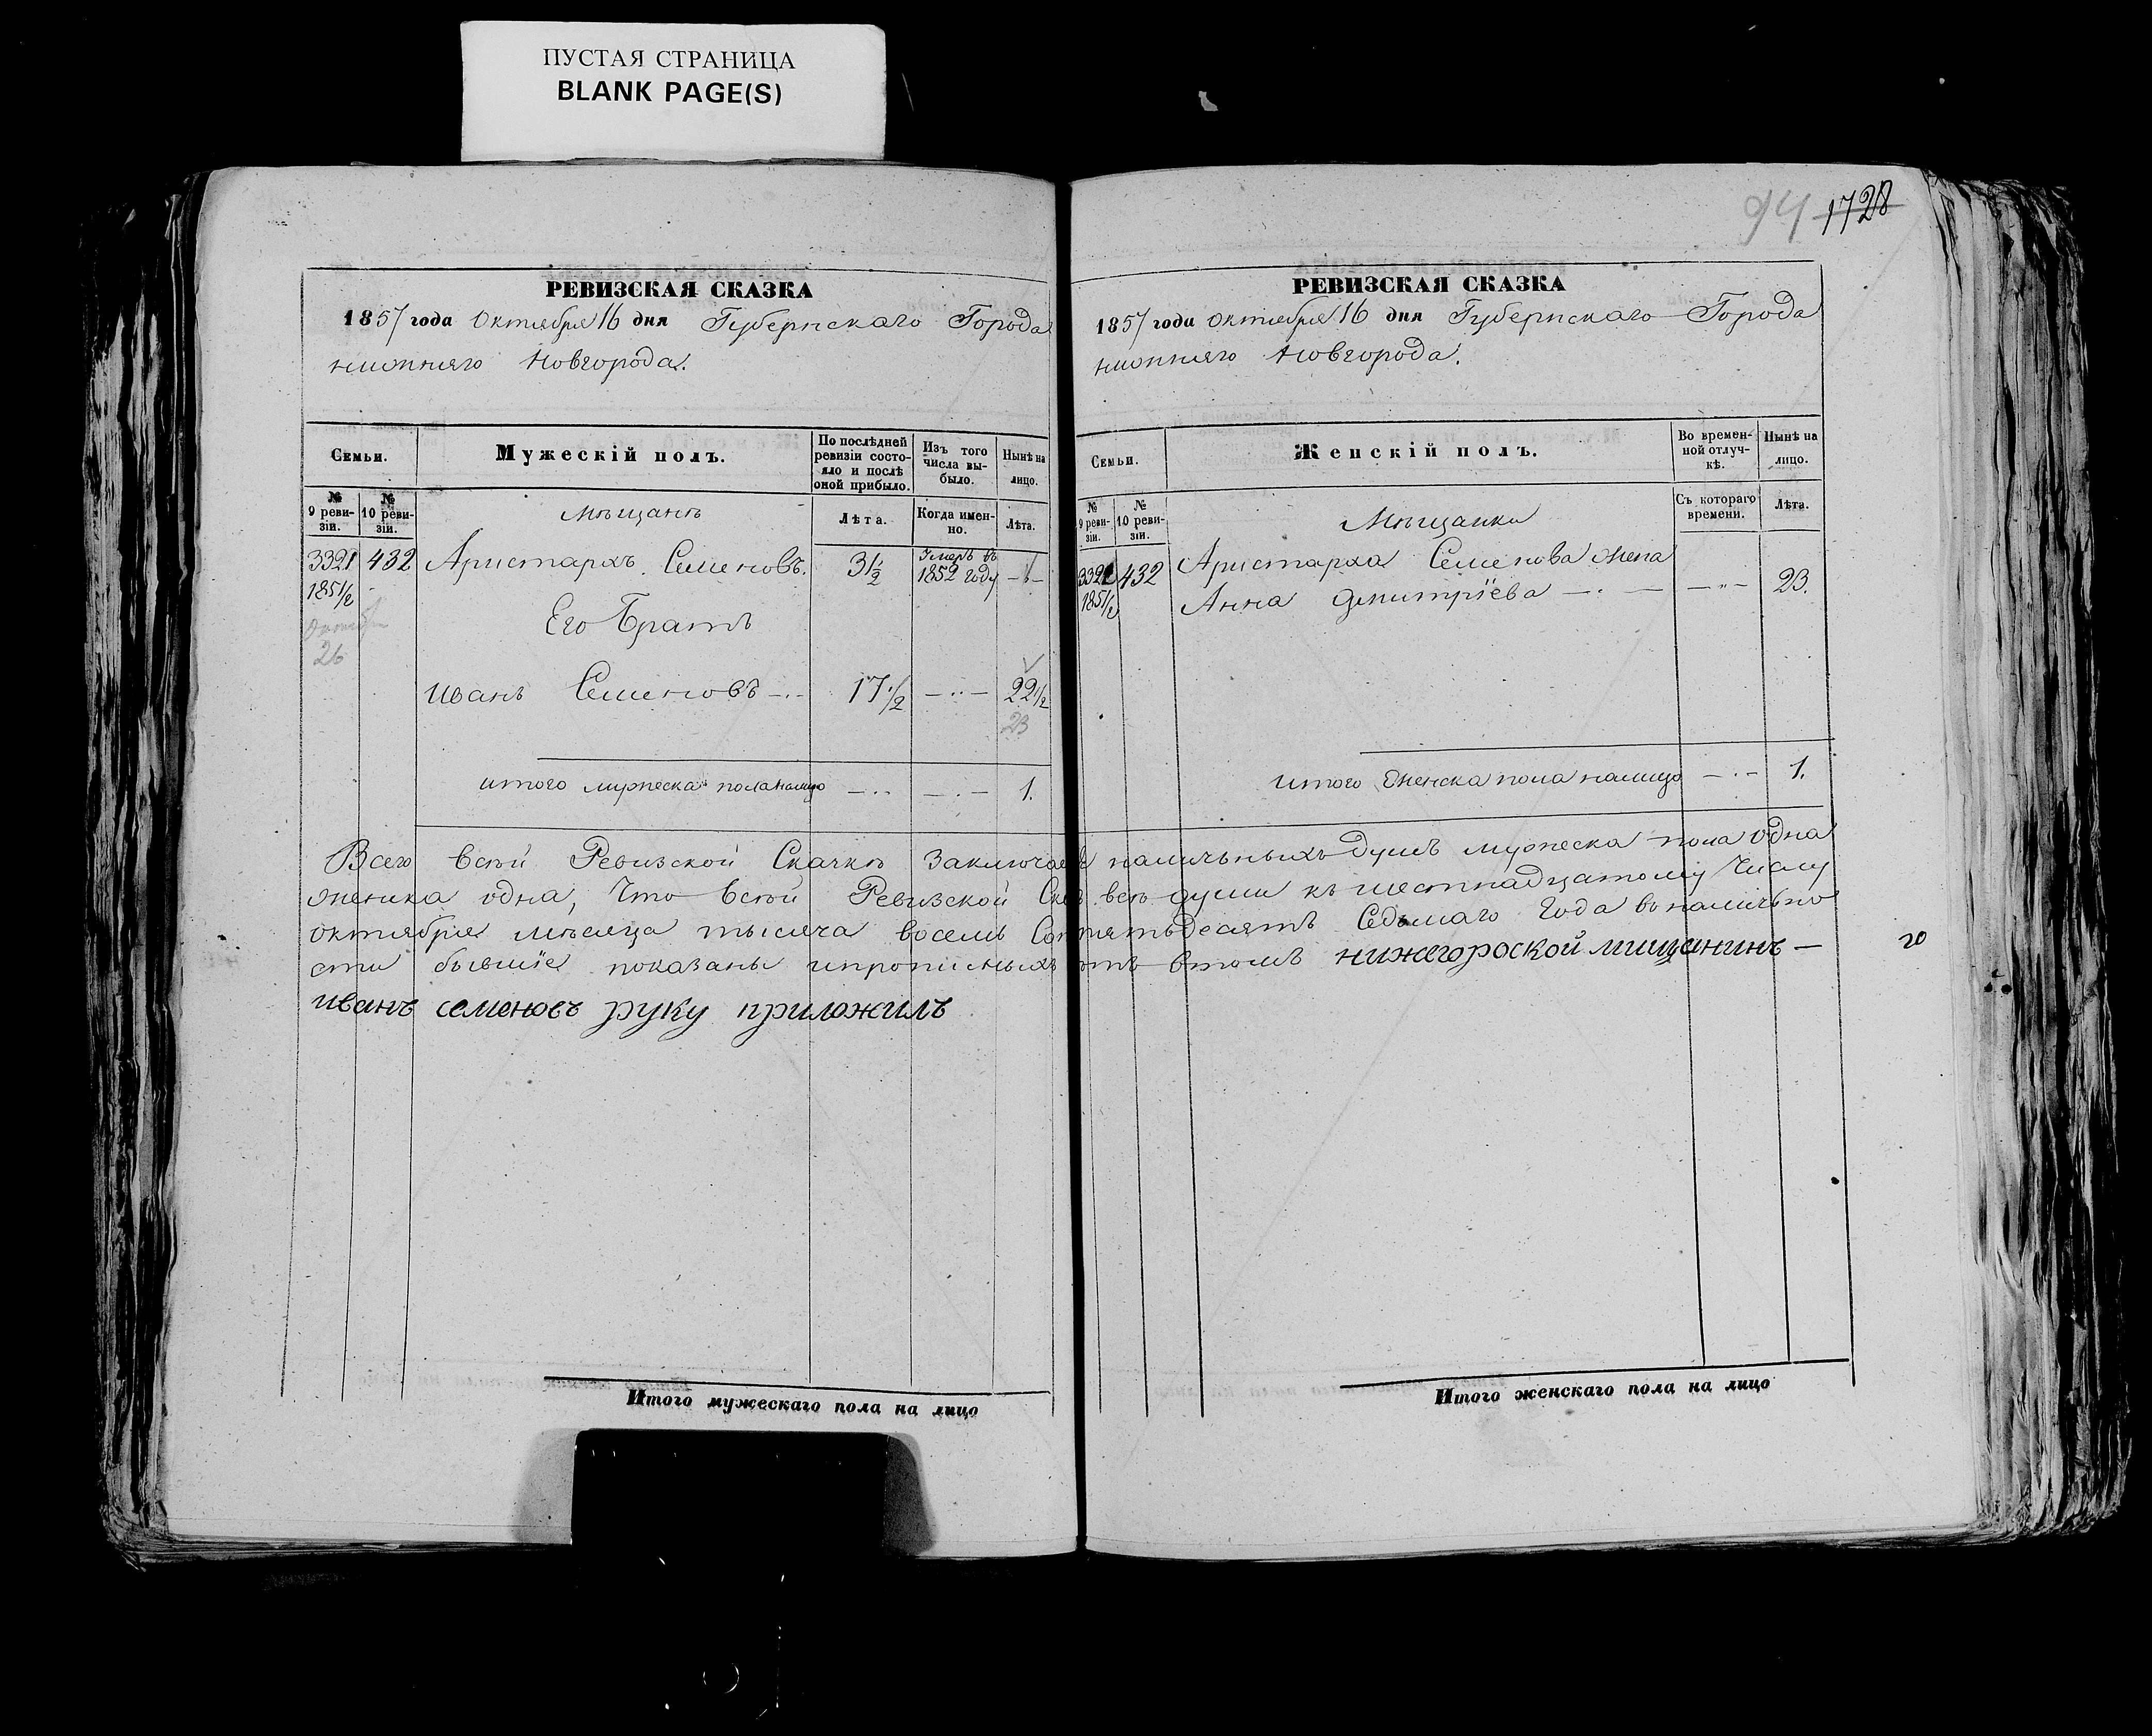 ПУСТАЯ СТРАНИЦА
BLANK PAGE(S)
РЕВИЗСКАЯ СКАЗКА
1857 года Октября 16 дня Губернскаго Города
нижняго Новгорода.
Семьи.
Мужескій полъ.
По послѣдней ревизіи состояло и послѣ оной прибыло.
Изъ того числа выбыло.
Нынѣ на лицо.
№ 9 ревизіи.
№ 10 ревизіи.
Мѣщанъ
Лѣта.
Когда именно.
Лѣта.
3321 432 Аристархъ Семеновъ. 31 1/2 Умеръ въ 1852 году
1851/2
Его Братъ
26
Иванъ Семеновъ 17 1/2 22 1/2
23
итого мужеска пола налицо 1.
94 1728
РЕВИЗСКАЯ СКАЗКА
1857 года Октября 16 дня Губернскаго Города
нижняго Новгорода.
Семьи.
Женскій полъ.
Во временной отлучкѣ.
Нынѣ на лицо.
№ 9 ревизіи.
№ 10 ревизіи.
Мѣщанки
Съ котораго времени.
Лѣта.
3321 432 Аристарха Семенова жена
1851/2 Анна Дмитріева 23.
итого женска пола налицо 1.
Всего всей Ревизской Скаски заключает наличныхъ душъ мужеска пола одна
женска одна, Что всей Ревизской Ска всѣ души къ шестнадцатому Числу
октября мѣсяца тысяча восемь Сот пятьдесятъ Седьмаго Года вналично
сти бывшіе показаны ипрописныхъ нѣтъ втомъ нижегороской мищанинъ —
иванъ семеновъ руку приложилъ
20
Итого мужескаго пола на лицо
Итого женскаго пола на лицо